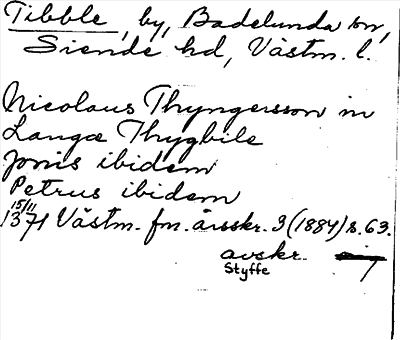 Tibble, by, Badelunda sn,
Siende hd, Västm. l.
Nicolaus Thyngersson in
Langæ Thygbile
Jonis ibidem
Petrus ibidem
15/11
1371 Västm. fm. årsskr. 3 (1884) s. 63.
avskr.
Styffe